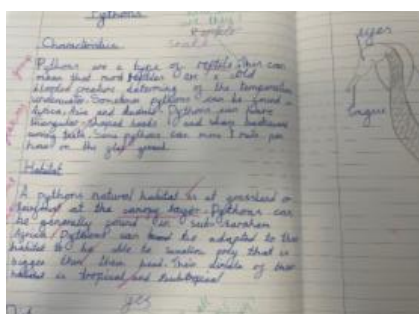 Pythons
Characteristics
Pythons are a type of reptile. This can
mean that most reptiles are a cold
blooded creature determing of the temperature
underwater. Sometimes pythons can be found in
Africa, Asia and Australia. Pythons can have
triangular shaped heads and sharp backwards
curving teeth. Some pythons can move 1 mile per
hour on the ground.
Habitat
A pythons natural habitat is at grassland or
at the canopy layer. Pythons can
be generally found in sub-saharan
Africa. Pythons can be adapted to the
habitat to be able to swallow prey that is
bigger than their head. Their climate of their
habitat is tropical and subtropical
eyes
tongue
yes